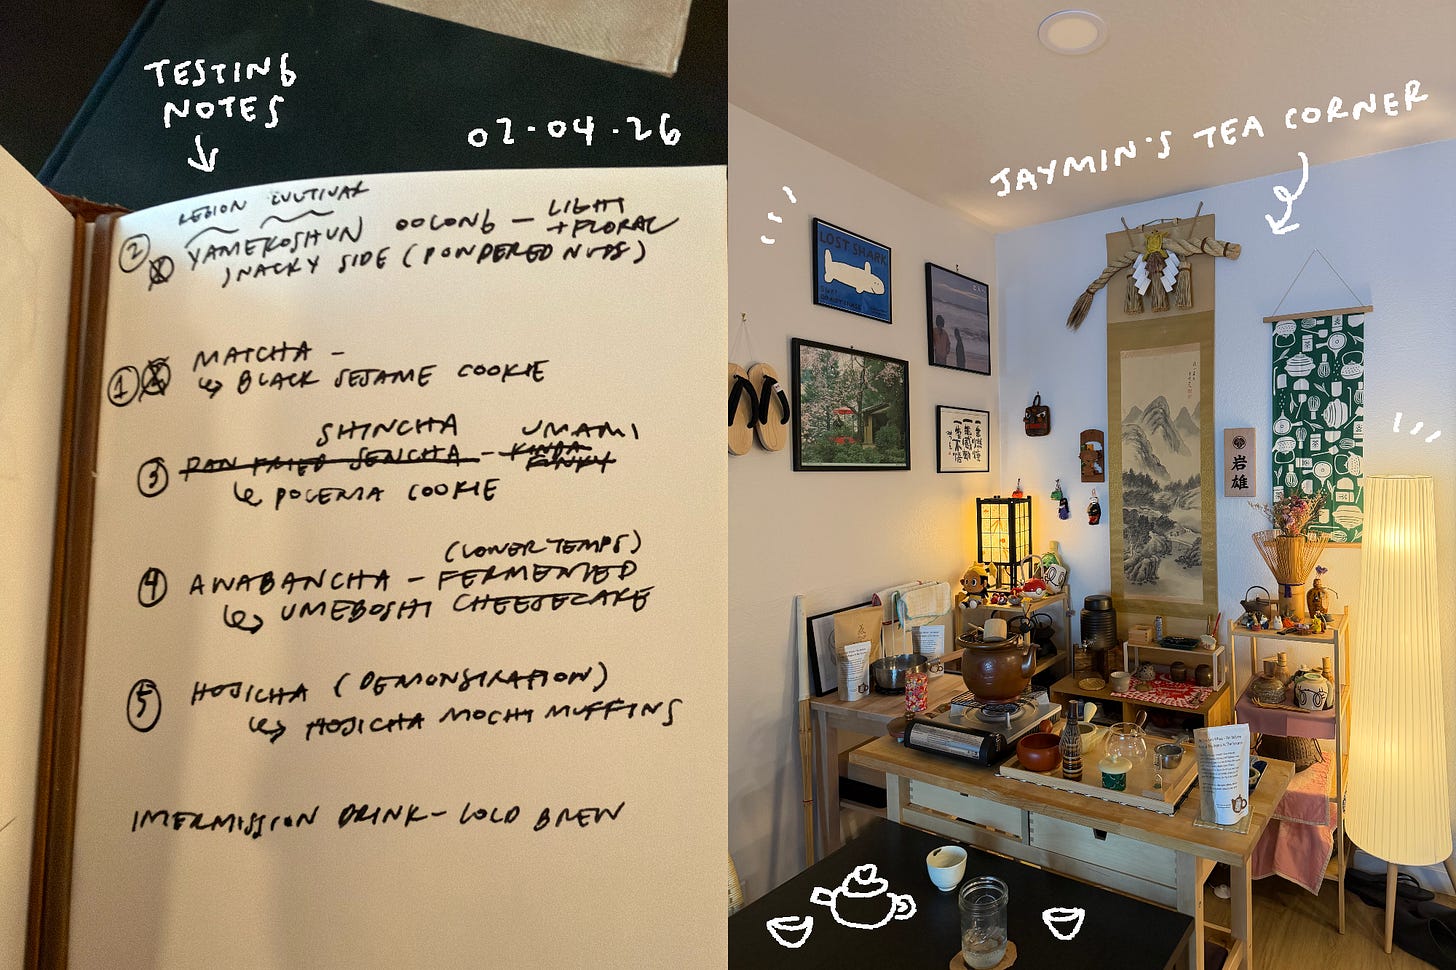 TESTING
NOTES
02·04·26
REGION CULTIVAR
② YAMEKOSHUN OOLONG — LIGHT
+ FLORAL
SNACKY SIDE (PONDERED NUTS)
① MATCHA —
↳ BLACK SESAME COOKIE
SHINCHA UMAMI
③ PAN FRIED SENCHA — KINDA
FUNKY
↳ POLENTA COOKIE
(LOWER TEMPS)
④ AWABANCHA — FERMENTED
↳ UMEBOSHI CHEESECAKE
⑤ HOJICHA (DEMONSTRATION)
↳ HOJICHA MOCHI MUFFINS
INTERMISSION DRINK — COLD BREW
JAYMIN'S TEA CORNER
LOST SHARK
岩雄